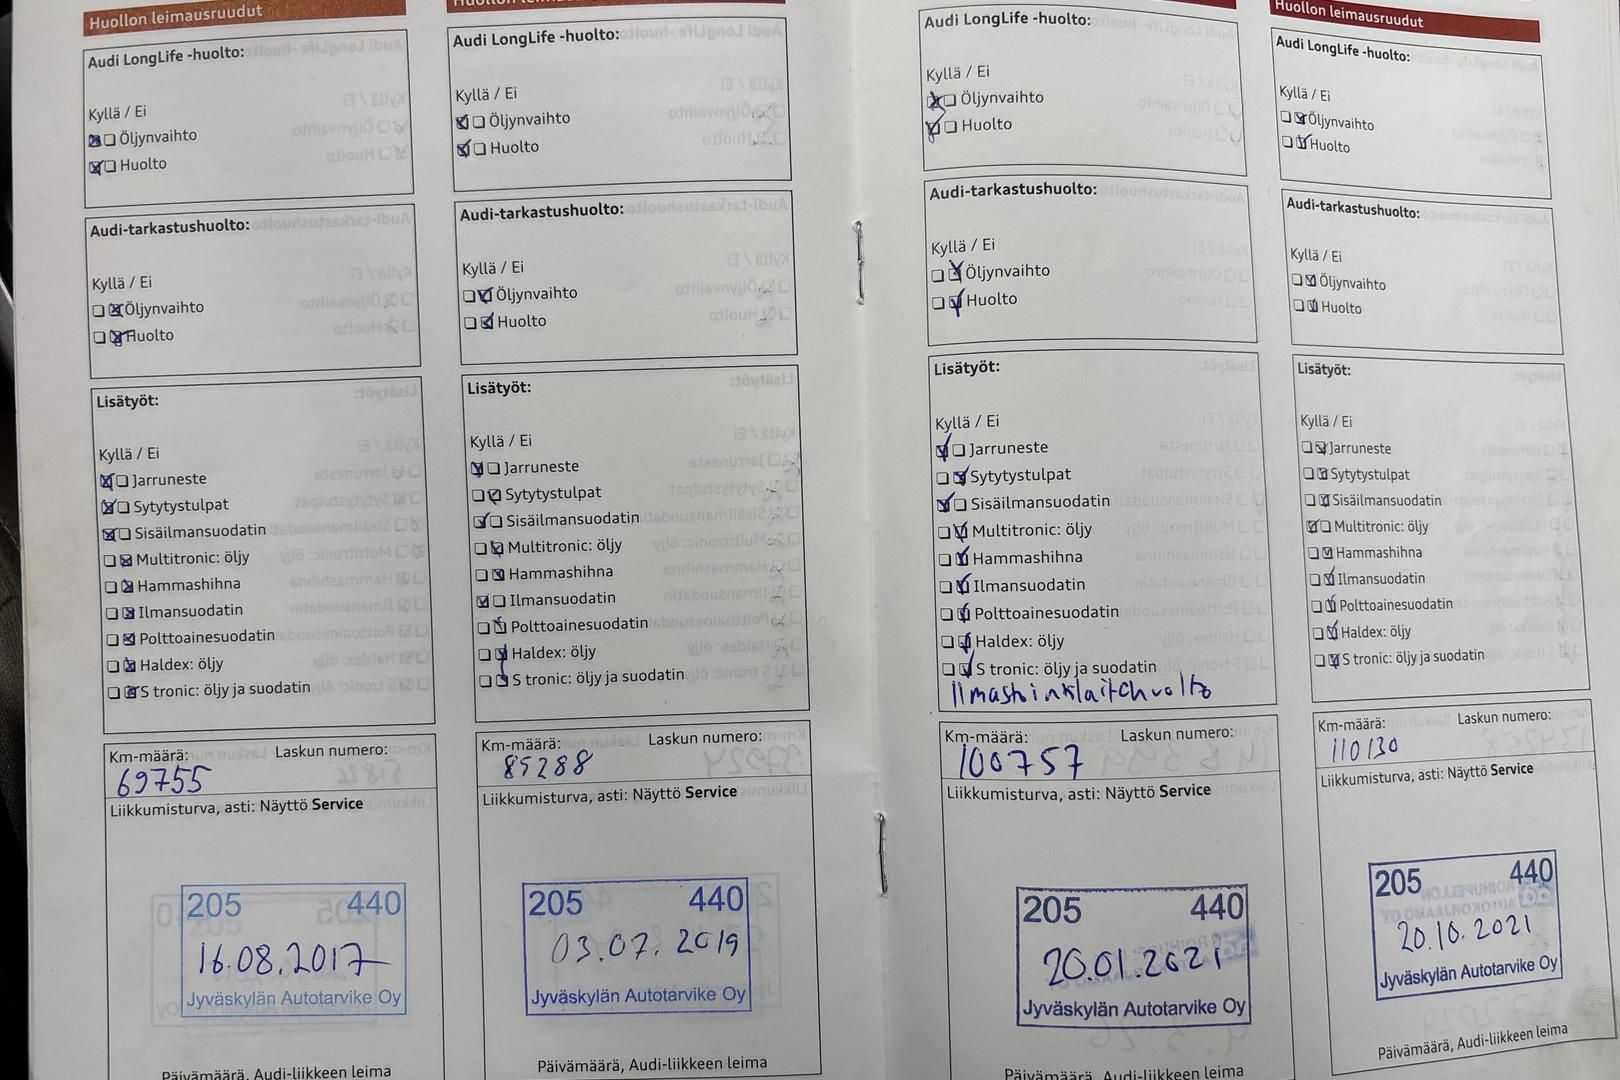 Huollon leimausruudut
Audi LongLife -huolto:
Kyllä / Ei
Öljynvaihto
Huolto
Audi-tarkastushuolto:
Kyllä / Ei
Öljynvaihto
Huolto
Lisätyöt:
Kyllä / Ei
Jarruneste
Sytytystulpat
Sisäilmansuodatin
Multitronic: öljy
Hammashihna
Ilmansuodatin
Polttoainesuodatin
Haldex: öljy
S tronic: öljy ja suodatin
Km-määrä: Laskun numero:
69755
Liikkumisturva, asti: Näyttö Service
205 440
16.08.2017
Jyväskylän Autotarvike Oy
Päivämäärä, Audi-liikkeen leima
Huollon leimausruudut
Audi LongLife -huolto:
Kyllä / Ei
Öljynvaihto
Huolto
Audi-tarkastushuolto:
Kyllä / Ei
Öljynvaihto
Huolto
Lisätyöt:
Kyllä / Ei
Jarruneste
Sytytystulpat
Sisäilmansuodatin
Multitronic: öljy
Hammashihna
Ilmansuodatin
Polttoainesuodatin
Haldex: öljy
S tronic: öljy ja suodatin
Km-määrä: Laskun numero:
85288
Liikkumisturva, asti: Näyttö Service
205 440
03.07.2019
Jyväskylän Autotarvike Oy
Päivämäärä, Audi-liikkeen leima
Audi LongLife -huolto:
Kyllä / Ei
Öljynvaihto
Huolto
Audi-tarkastushuolto:
Kyllä / Ei
Öljynvaihto
Huolto
Lisätyöt:
Kyllä / Ei
Jarruneste
Sytytystulpat
Sisäilmansuodatin
Multitronic: öljy
Hammashihna
Ilmansuodatin
Polttoainesuodatin
Haldex: öljy
S tronic: öljy ja suodatin
Ilmastointilaitehuolto
Km-määrä: Laskun numero:
100757
Liikkumisturva, asti: Näyttö Service
205 440
20.01.2021
Jyväskylän Autotarvike Oy
Päivämäärä, Audi-liikkeen leima
Huollon leimausruudut
Audi LongLife -huolto:
Kyllä / Ei
Öljynvaihto
Huolto
Audi-tarkastushuolto:
Kyllä / Ei
Öljynvaihto
Huolto
Lisätyöt:
Kyllä / Ei
Jarruneste
Sytytystulpat
Sisäilmansuodatin
Multitronic: öljy
Hammashihna
Ilmansuodatin
Polttoainesuodatin
Haldex: öljy
S tronic: öljy ja suodatin
Km-määrä: Laskun numero:
110130
Liikkumisturva, asti: Näyttö Service
205 440
20.10.2021
Jyväskylän Autotarvike Oy
Päivämäärä, Audi-liikkeen leima